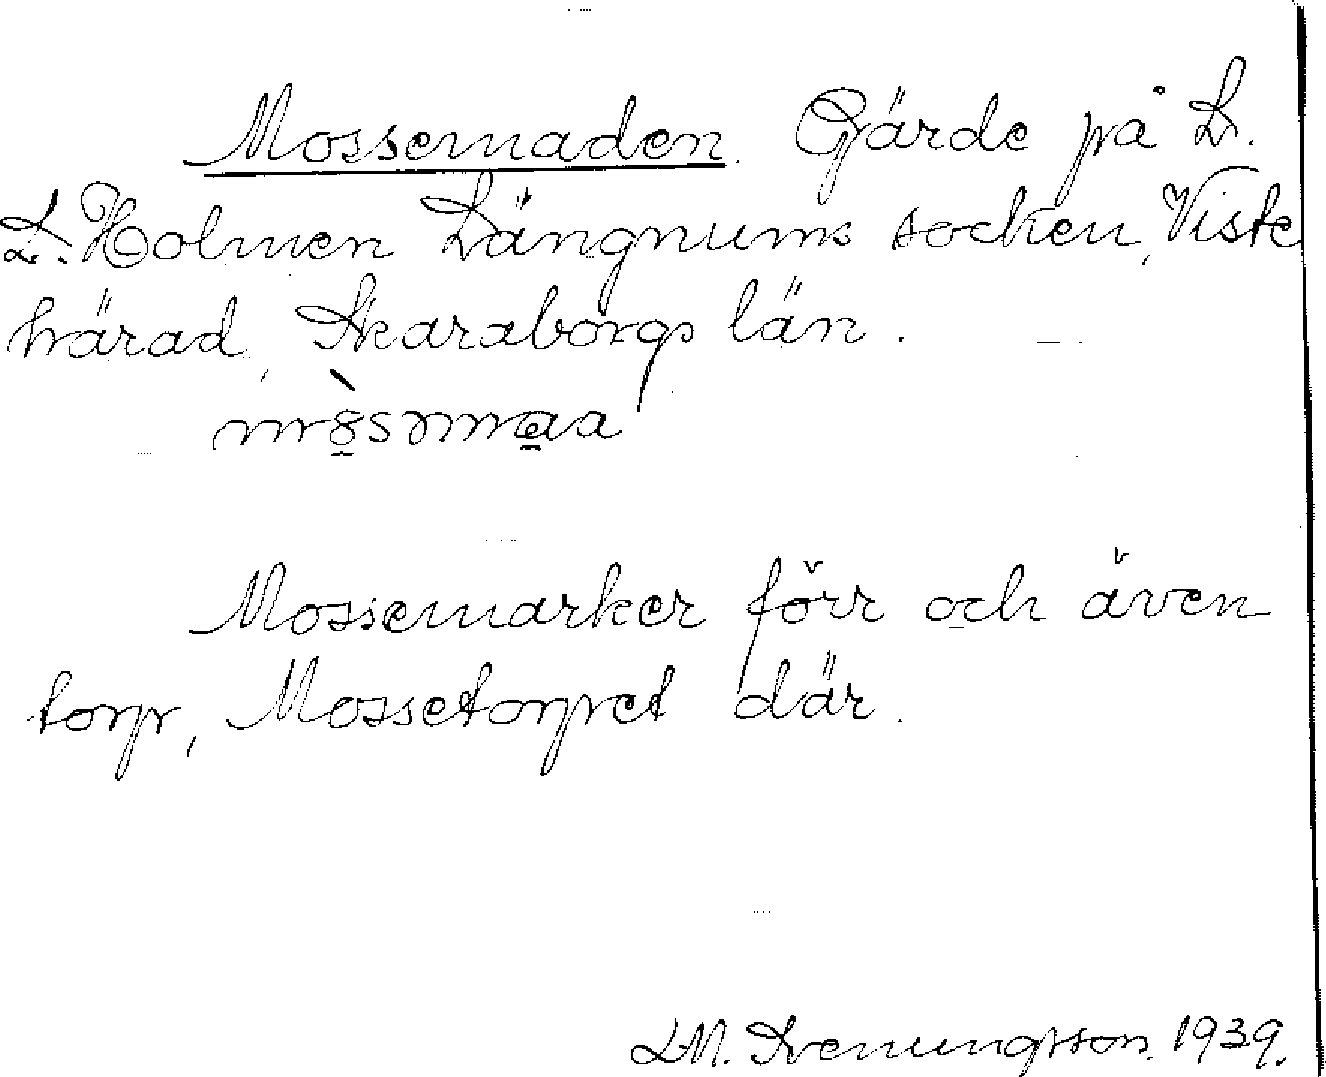 Mossemaden. Gärde på L.
L. Holmen Längnums socken, Viste
härad, Skaraborgs län.
Mossemarker förr och även
torp, Mossetorpet där.
L.M. Svenungsson. 1939.